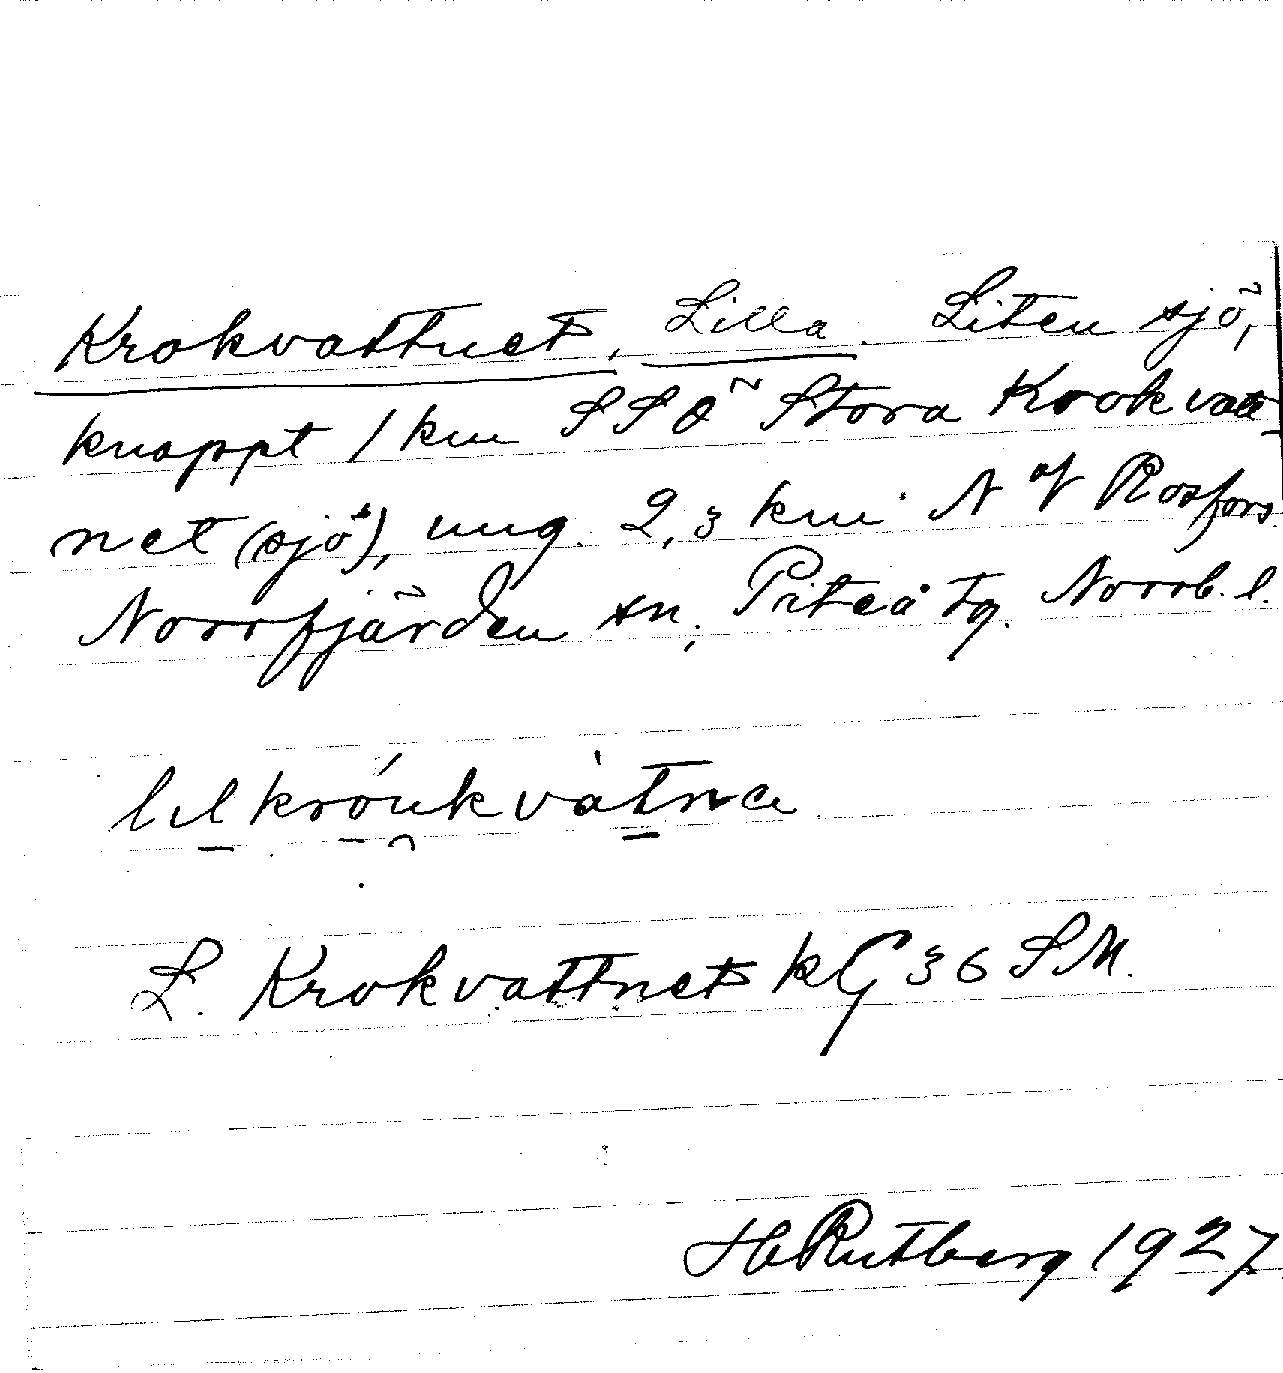 Krokvattnet, Lilla. Liten sjö,
knappt 1 km SSÖ Stora Krokvatt-
net (sjö), ung. 2,3 km N of Rosfors
Norrfjärden sn, Piteå tg. Norrb. l.
lɩlkróukvàtnɑ
L. Krokvattnet kG 36 SM.
H Rutberg 1927